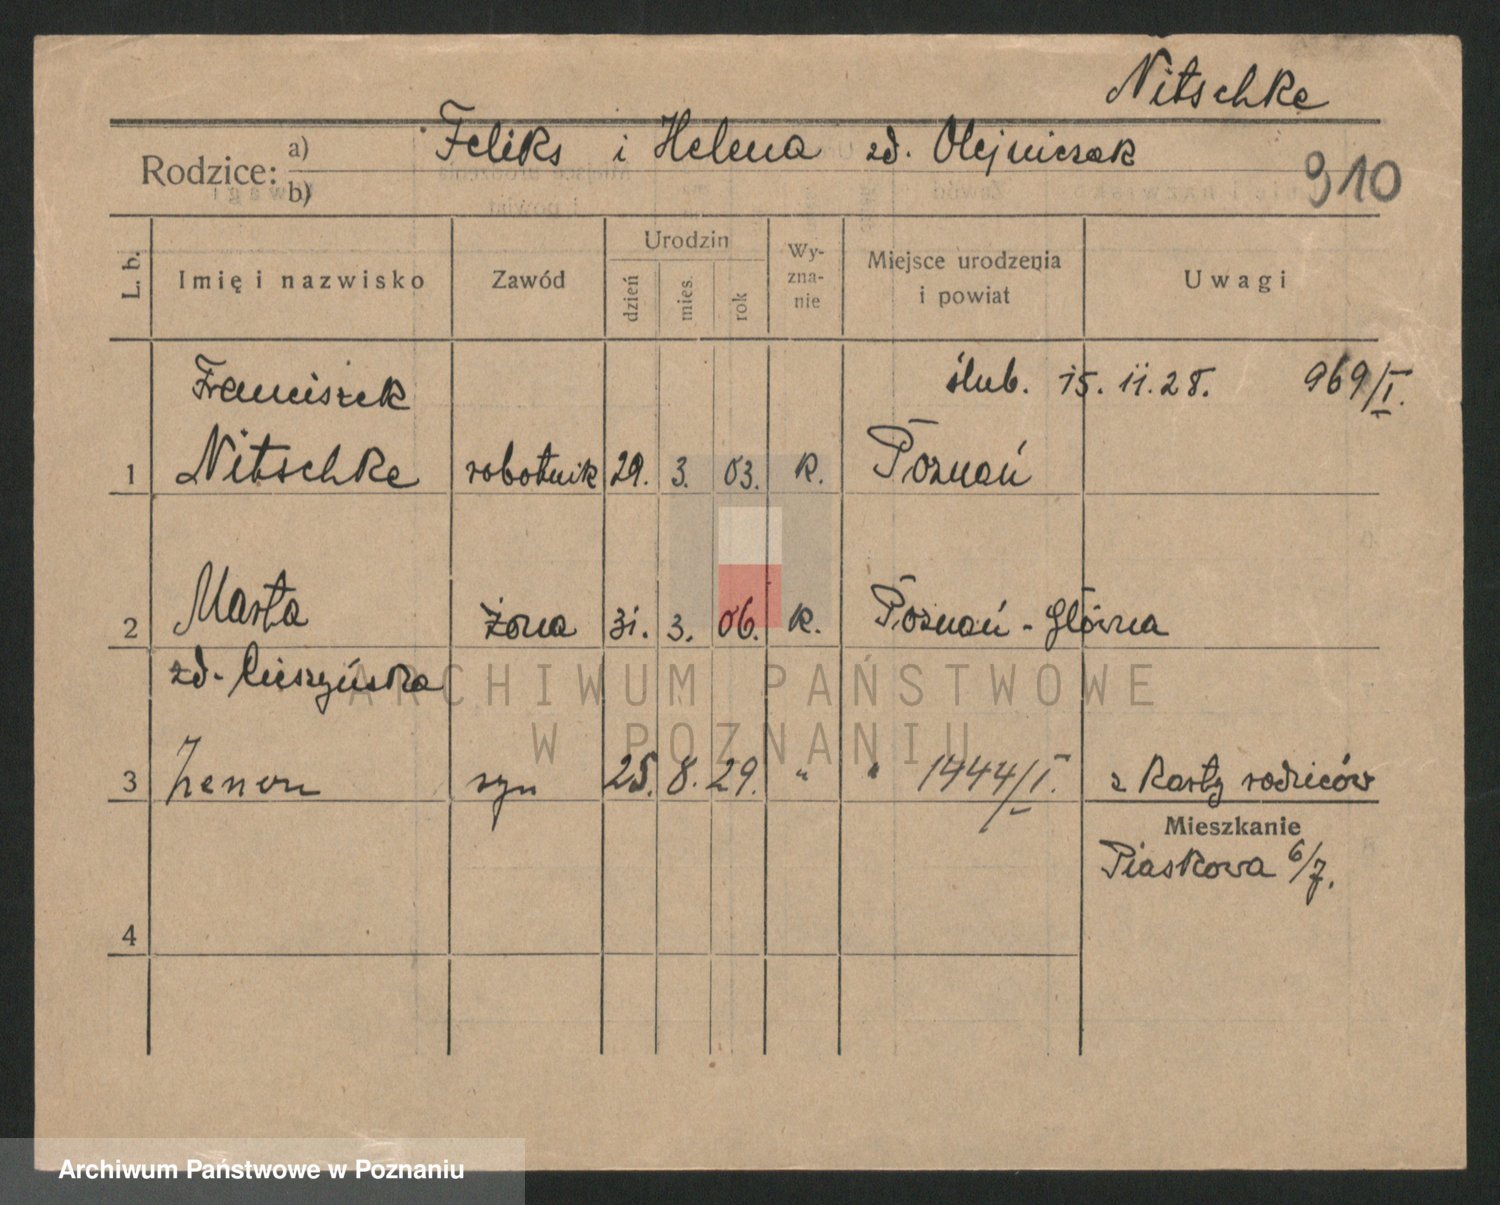 Nitschke
Rodzice: a) Feliks i Helena zd. Olejniczak
b)
910
L. b.
Imię i nazwisko
Zawód
Urodzin
dzień
mies.
rok
Wy-
zna-
nie
Miejsce urodzenia
i powiat
Uwagi
Franciszek ślub. 15.11.28. 969/I.
1 Nitschke robotnik 29. 3. 03. k. Poznań
2 Marta żona 31. 3. 06. k. Poznań - Główna
zd. Cieszyńska
3 Zenon syn 25. 8. 29. " " 1444/I. z karty rodziców
Mieszkanie
Piaskowa 6/7.
4
ARCHIWUM PAŃSTWOWE
W POZNANIU
Archiwum Państwowe w Poznaniu